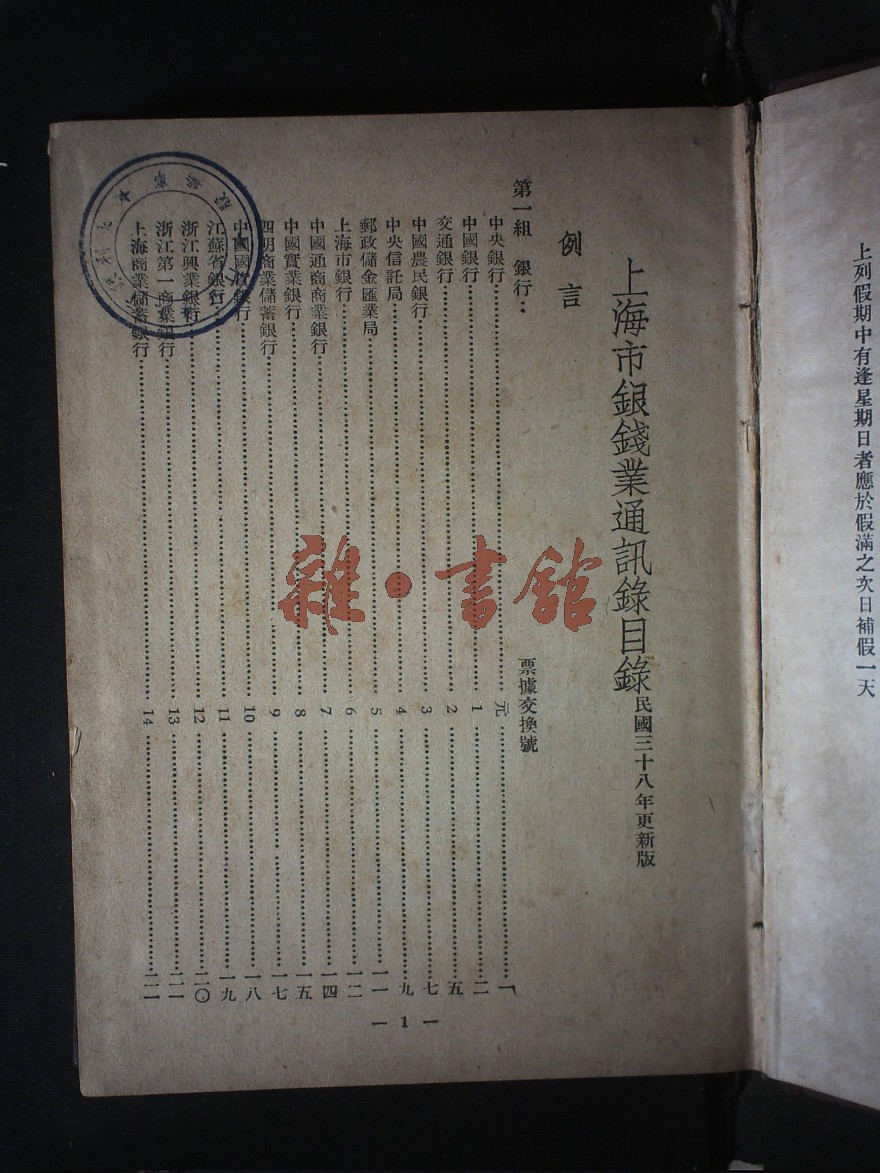 上列假期中有逢星期日者應於假滿之次日補假一天
上海市銀錢業通訊錄目錄民國三十八年更新版
例言
第一組 銀行： 票據交換號
中央銀行 元 一
中國銀行 1 二
交通銀行 2 五
中國農民銀行 3 七
中央信託局 4 九
郵政儲金匯業局 5 一一
上海市銀行 6 一二
中國通商商業銀行 7 一四
中國實業銀行 8 一五
四明商業儲蓄銀行 9 一七
中國國貨銀行 10 一八
江蘇省銀行 11 一九
浙江興業銀行 12 二〇
浙江第一商業銀行 13 二一
上海商業儲蓄銀行 14 二二
— 1 —
雜·書館